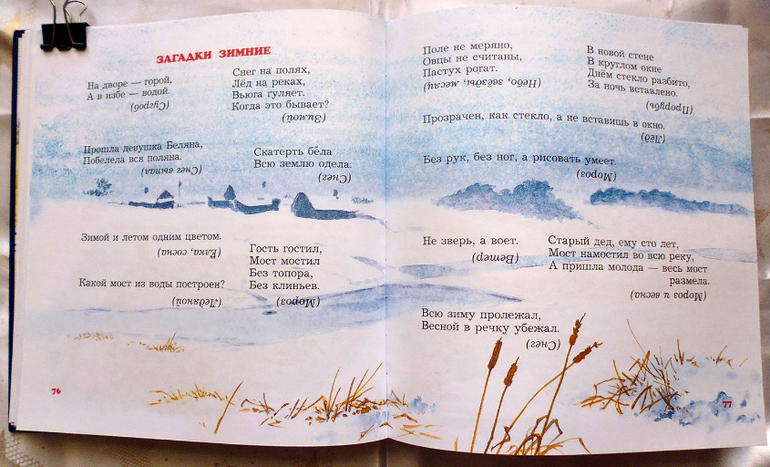 ЗАГАДКИ ЗИМНИЕ
На дворе — горой,
А в избе — водой.
(Сугроб)
Снег на полях,
Лёд на реках,
Вьюга гуляет.
Когда это бывает?
(Зимой)
Прошла девушка Беляна,
Побелела вся поляна.
(Снег выпал)
Скатерть бела
Всю землю одела.
(Снег)
Зимой и летом одним цветом.
(Ёлка, сосна)
Какой мост из воды построен?
(Ледяной)
Гость гостил,
Мост мостил
Без топора,
Без клиньев.
(Мороз)
76
Поле не меряно,
Овцы не считаны,
Пастух рогат.
(Небо, звёзды, месяц)
В новой стене
В круглом окне
Днём стекло разбито,
За ночь вставлено.
(Прорубь)
Прозрачен, как стекло, а не вставишь в окно.
(Лёд)
Без рук, без ног, а рисовать умеет.
(Мороз)
Не зверь, а воет.
(Ветер)
Старый дед, ему сто лет,
Мост намостил во всю реку,
А пришла молода — весь мост
размела.
(Мороз и весна)
Всю зиму пролежал,
Весной в речку убежал.
(Снег)
77